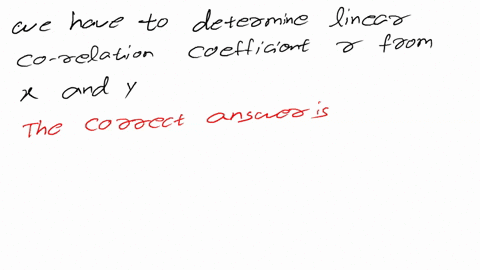 we have to determine linear
co-relation coefficient r from
x and y
The correct answer is